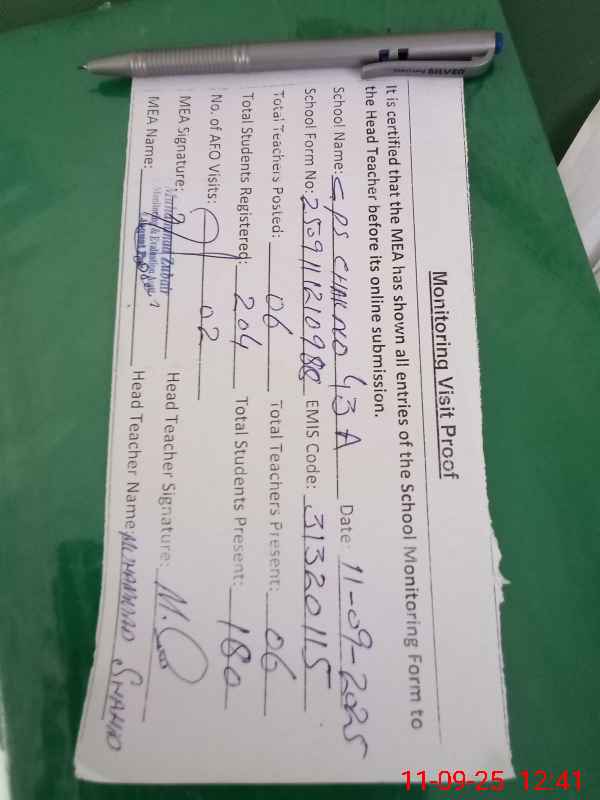 Monitoring Visit Proof
It is certified that the MEA has shown all entries of the School Monitoring Form to
the Head Teacher before its online submission.
School Name: GPS CHAK NO 43 A Date: 11-09-2025
School Form No: EMIS Code: 31320115
Total Teachers Posted: 06 Total Teachers Present: 06
Total Students Registered: 204 Total Students Present: 180
No. of AEO Visits: 02
MEA Signature: Head Teacher Signature:
MEA Name: Head Teacher Name: MUHAMMAD
Muhammad Zubair
Monitoring & Evaluation
SILVER
11-09-25 12:41